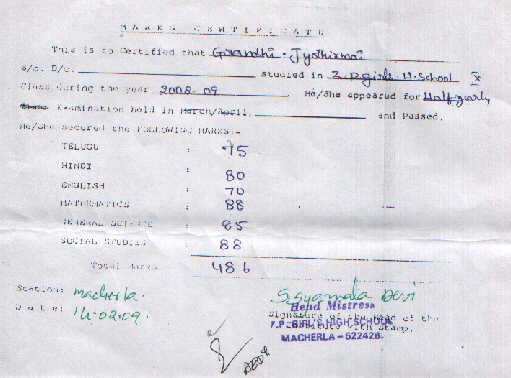 MARKS CERTIFICATE
This is to Certified that Grandhi. Jyothirmai
S/o. D/o. studied in Z.P. girls H.School X
Class during the year 2008-09 He/She appeared for Half yearly
Examination held in March/April, and Passed.
He/She secured the FOLLOWING MARKS:-
TELUGU : 75
HINDI : 80
ENGLISH : 70
MATHEMATICS : 88
GENERAL SCIENCE : 85
SOCIAL STUDIES : 88
Total Marks 486
Station: Macherla.
Date: 14-02-09.
S. Syamala Devi
Head Mistress
Signature of the Head of the
Z.P. GIRL'S HIGH SCHOOL
with stamp.
MACHERLA - 522426.